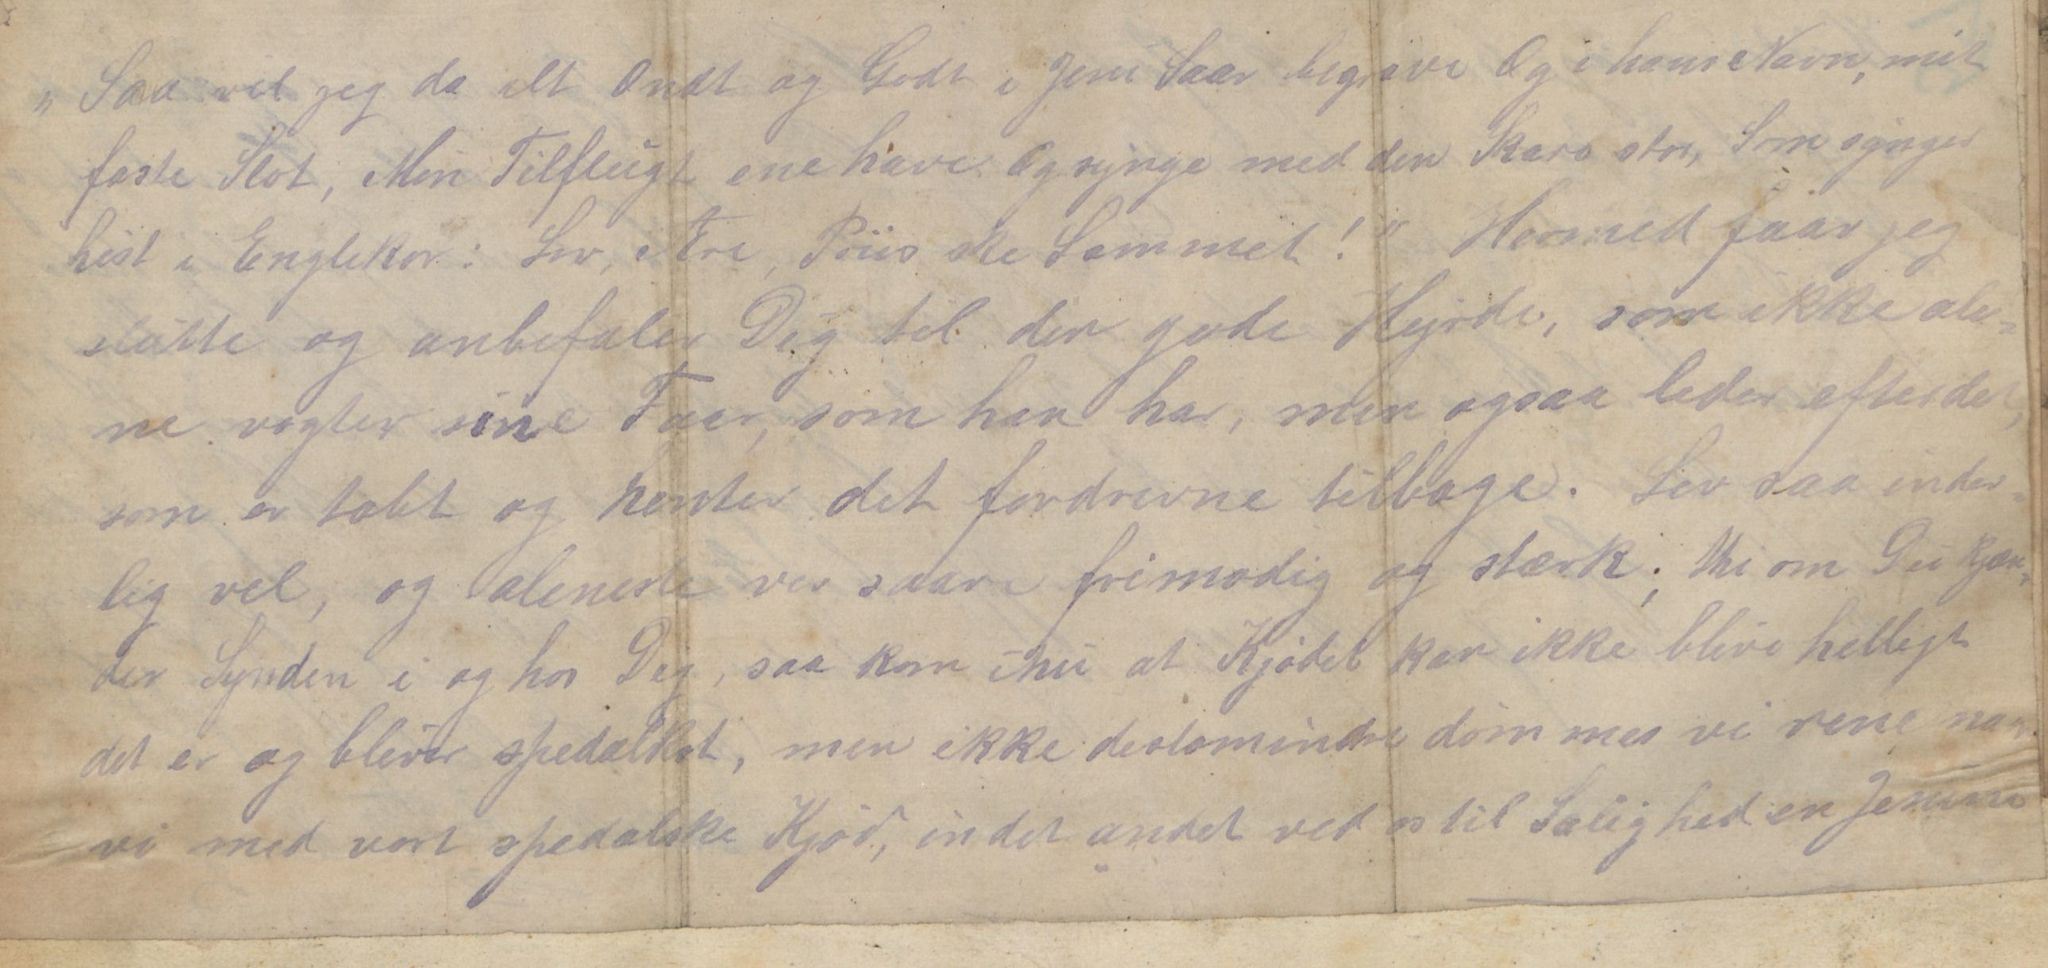 „ Saa vil jeg da alt Ondt og Godt i Jesu Saar begrave Og i hans Navn, mit
faste Slot, Min Tilflugt ene have Og synge med den Skara stor, Som synger
hist i Englekor: Lov, Ære, Priis ske Lammet!" Hermed faar jeg
slutte og anbefaler Dig til den gode Hyrde, som ikke ale-
ne vogter sine Faar, som han har, men ogsaa leder efter det,
som er tabt og henter det fordrevne tilbage. Lev saa inder-
lig vel, og aleneste ver saare frimodig og stærk; thi om Du kjen-
der Synden i og hos Dig, saa kom ihu at Kjødet kan ikke blive helligt
det er og bliver spedalskt, men ikke destomindre dømmes vi rene naar
vi med vort spedalske Kjød, indet andet ved os til Salighed en Jesum